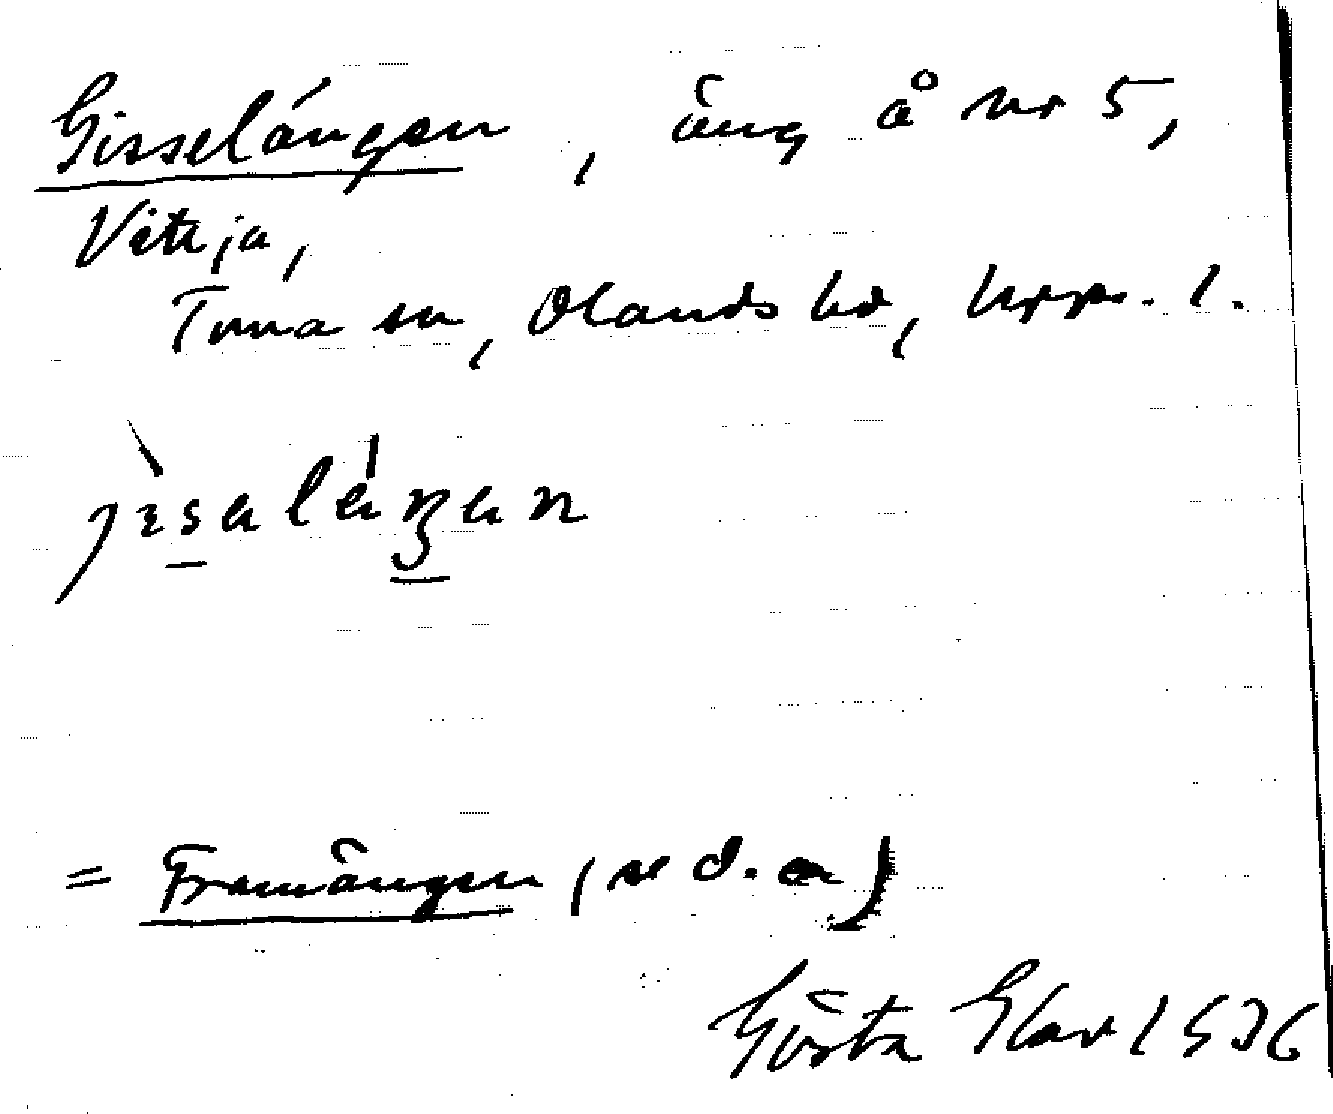 Gisselängen, äng å nr 5,
Viteja,
Tuna sn, Olands hd, Upps. l.
= Framängen (se d. o.)
Gösta Elar 1936